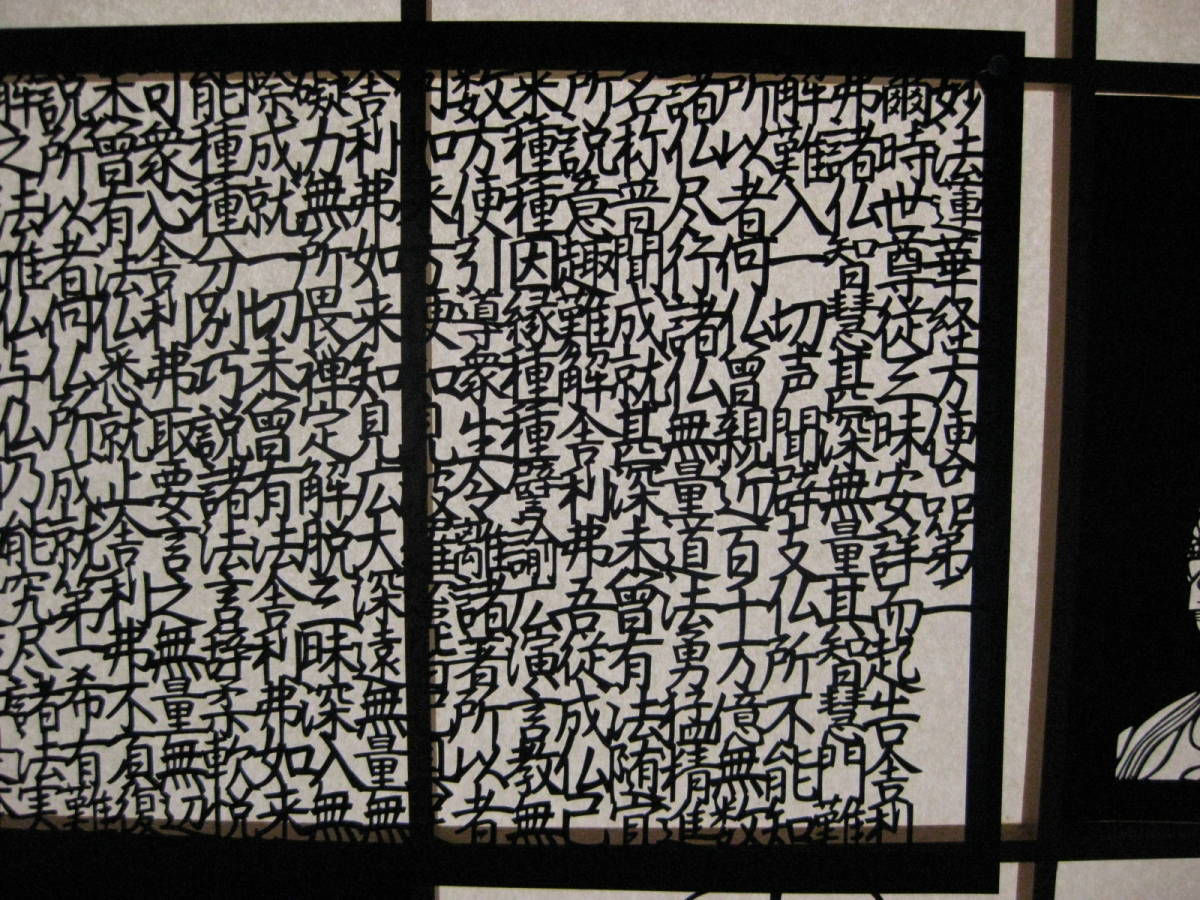 妙法蓮華経方便品第二
爾時世尊従三昧安詳而起告舎利
弗諸仏智慧甚深無量其智慧門難
解難入一切声聞辟支仏所不能知
所以者何仏曾親近百千万億無数
諸仏尽行諸仏無量道法勇猛精進
名称普聞成就甚深未曾有法随宜
所説意趣難解舎利弗吾従成仏已
来種種因縁種種譬諭広演言教無
数方便引導衆生令離諸著所以者
何如来方便知見波羅蜜皆已具足
舎利弗如来知見広大深遠無量無
礙力無所畏禅定解脱三昧深入無
際成就一切未曾有法舎利弗如来
能種種分別巧説諸法言辞柔軟悦
可衆心舎利弗取要言之無量無辺
未曾有法仏悉就止舎利弗不須復
説所以者何仏所成就第一希有難
解之法唯仏与仏乃能究尽諸法実